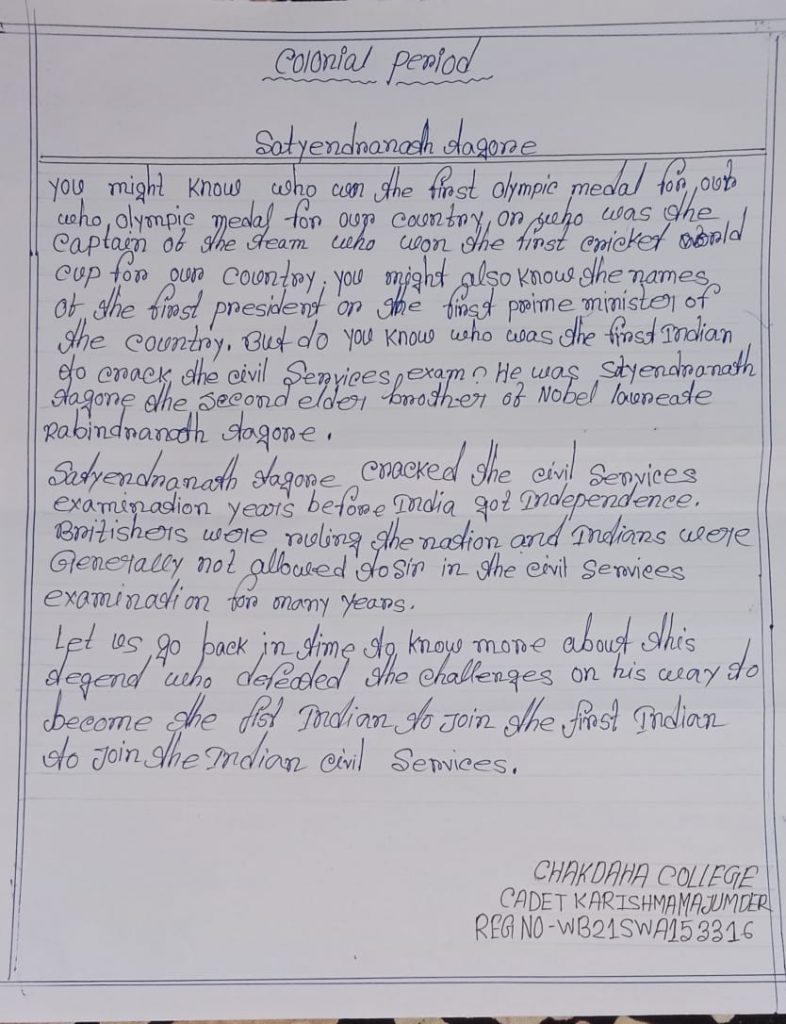 Colonial Period
Satyendranath tagore
you might know who won the first olympic medal for our
who olympic medal for our country, or who was the
captain of the team who won the first cricket world
cup for our country, you might also know the names
of the first president or the first prime minister of
the country. But do you know who was the first Indian
to crack the civil Services exam? He was Satyendranath
tagore the second elder brother of Nobel laureate
Rabindranath tagore.
Satyendranath tagore cracked the civil Services
examination years before India got Independence.
Britishers were ruling the nation and Indians were
Generally not allowed to sir in the civil services
examination for many years.
Let us go back in time to know more about this
legend who defeated the challenges on his way to
become the fist Indian to join the first Indian
to join the Indian civil Services.
CHAKDAHA COLLEGE
CADET KARISHMA MAJUMDER
REG NO-WB21SWA153316